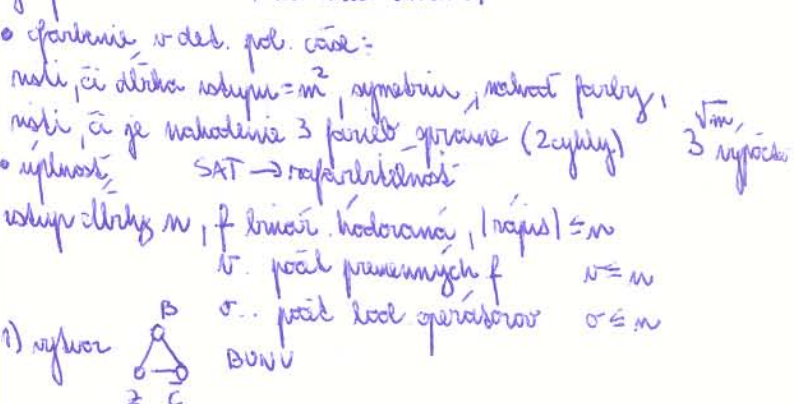 • ofarbenie v det. pol. čase:
zisti, či dĺžka vstupu = m², symetriu, nahoď farby,
zisti, či je nahodenie 3 farieb správne (2 cykly) 3^√m výpočtov
• úplnosť, SAT → zafarbiteľnosť
vstup dĺžky n, f binár. kódovaná, |zápis| ≤ n
v.. počet premenných f v ≤ n
σ.. počet bool operátorov σ ≤ n
1) vytvor B BUNV
Z Č